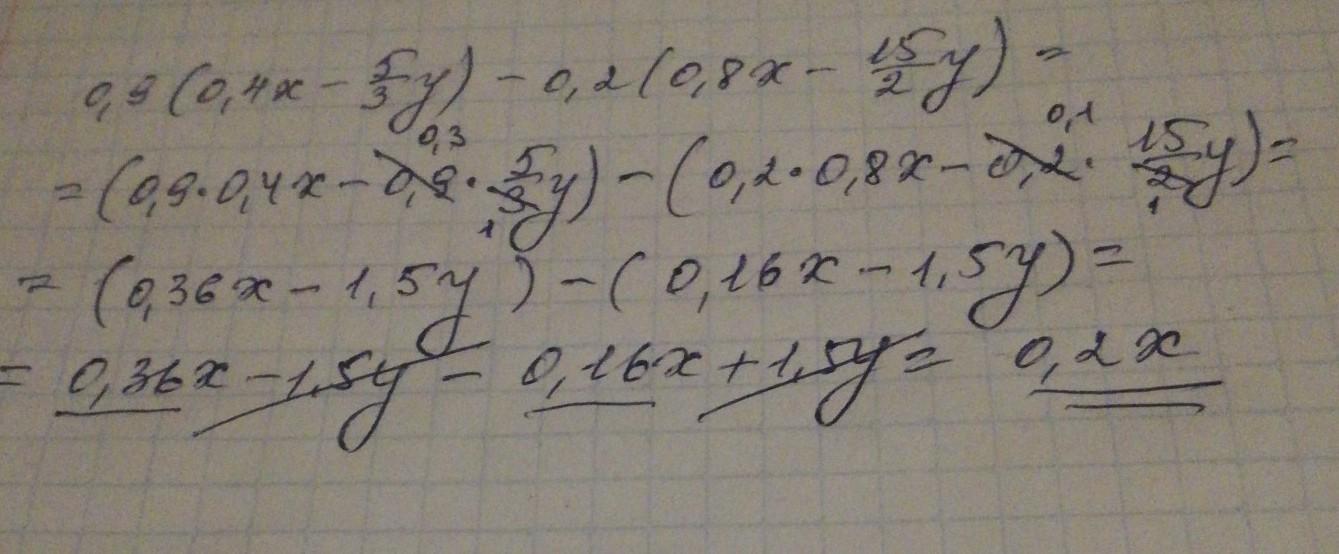 0,9(0,4x - 5/3 y) - 0,2(0,8x - 15/2 y) =
0,3 0,1
= (0,9·0,4x - 0,9·5/3 y) - (0,2·0,8x - 0,2·15/2 y) =
1 1
= (0,36x - 1,5y) - (0,16x - 1,5y) =
= 0,36x - 1,5y - 0,16x + 1,5y = 0,2x